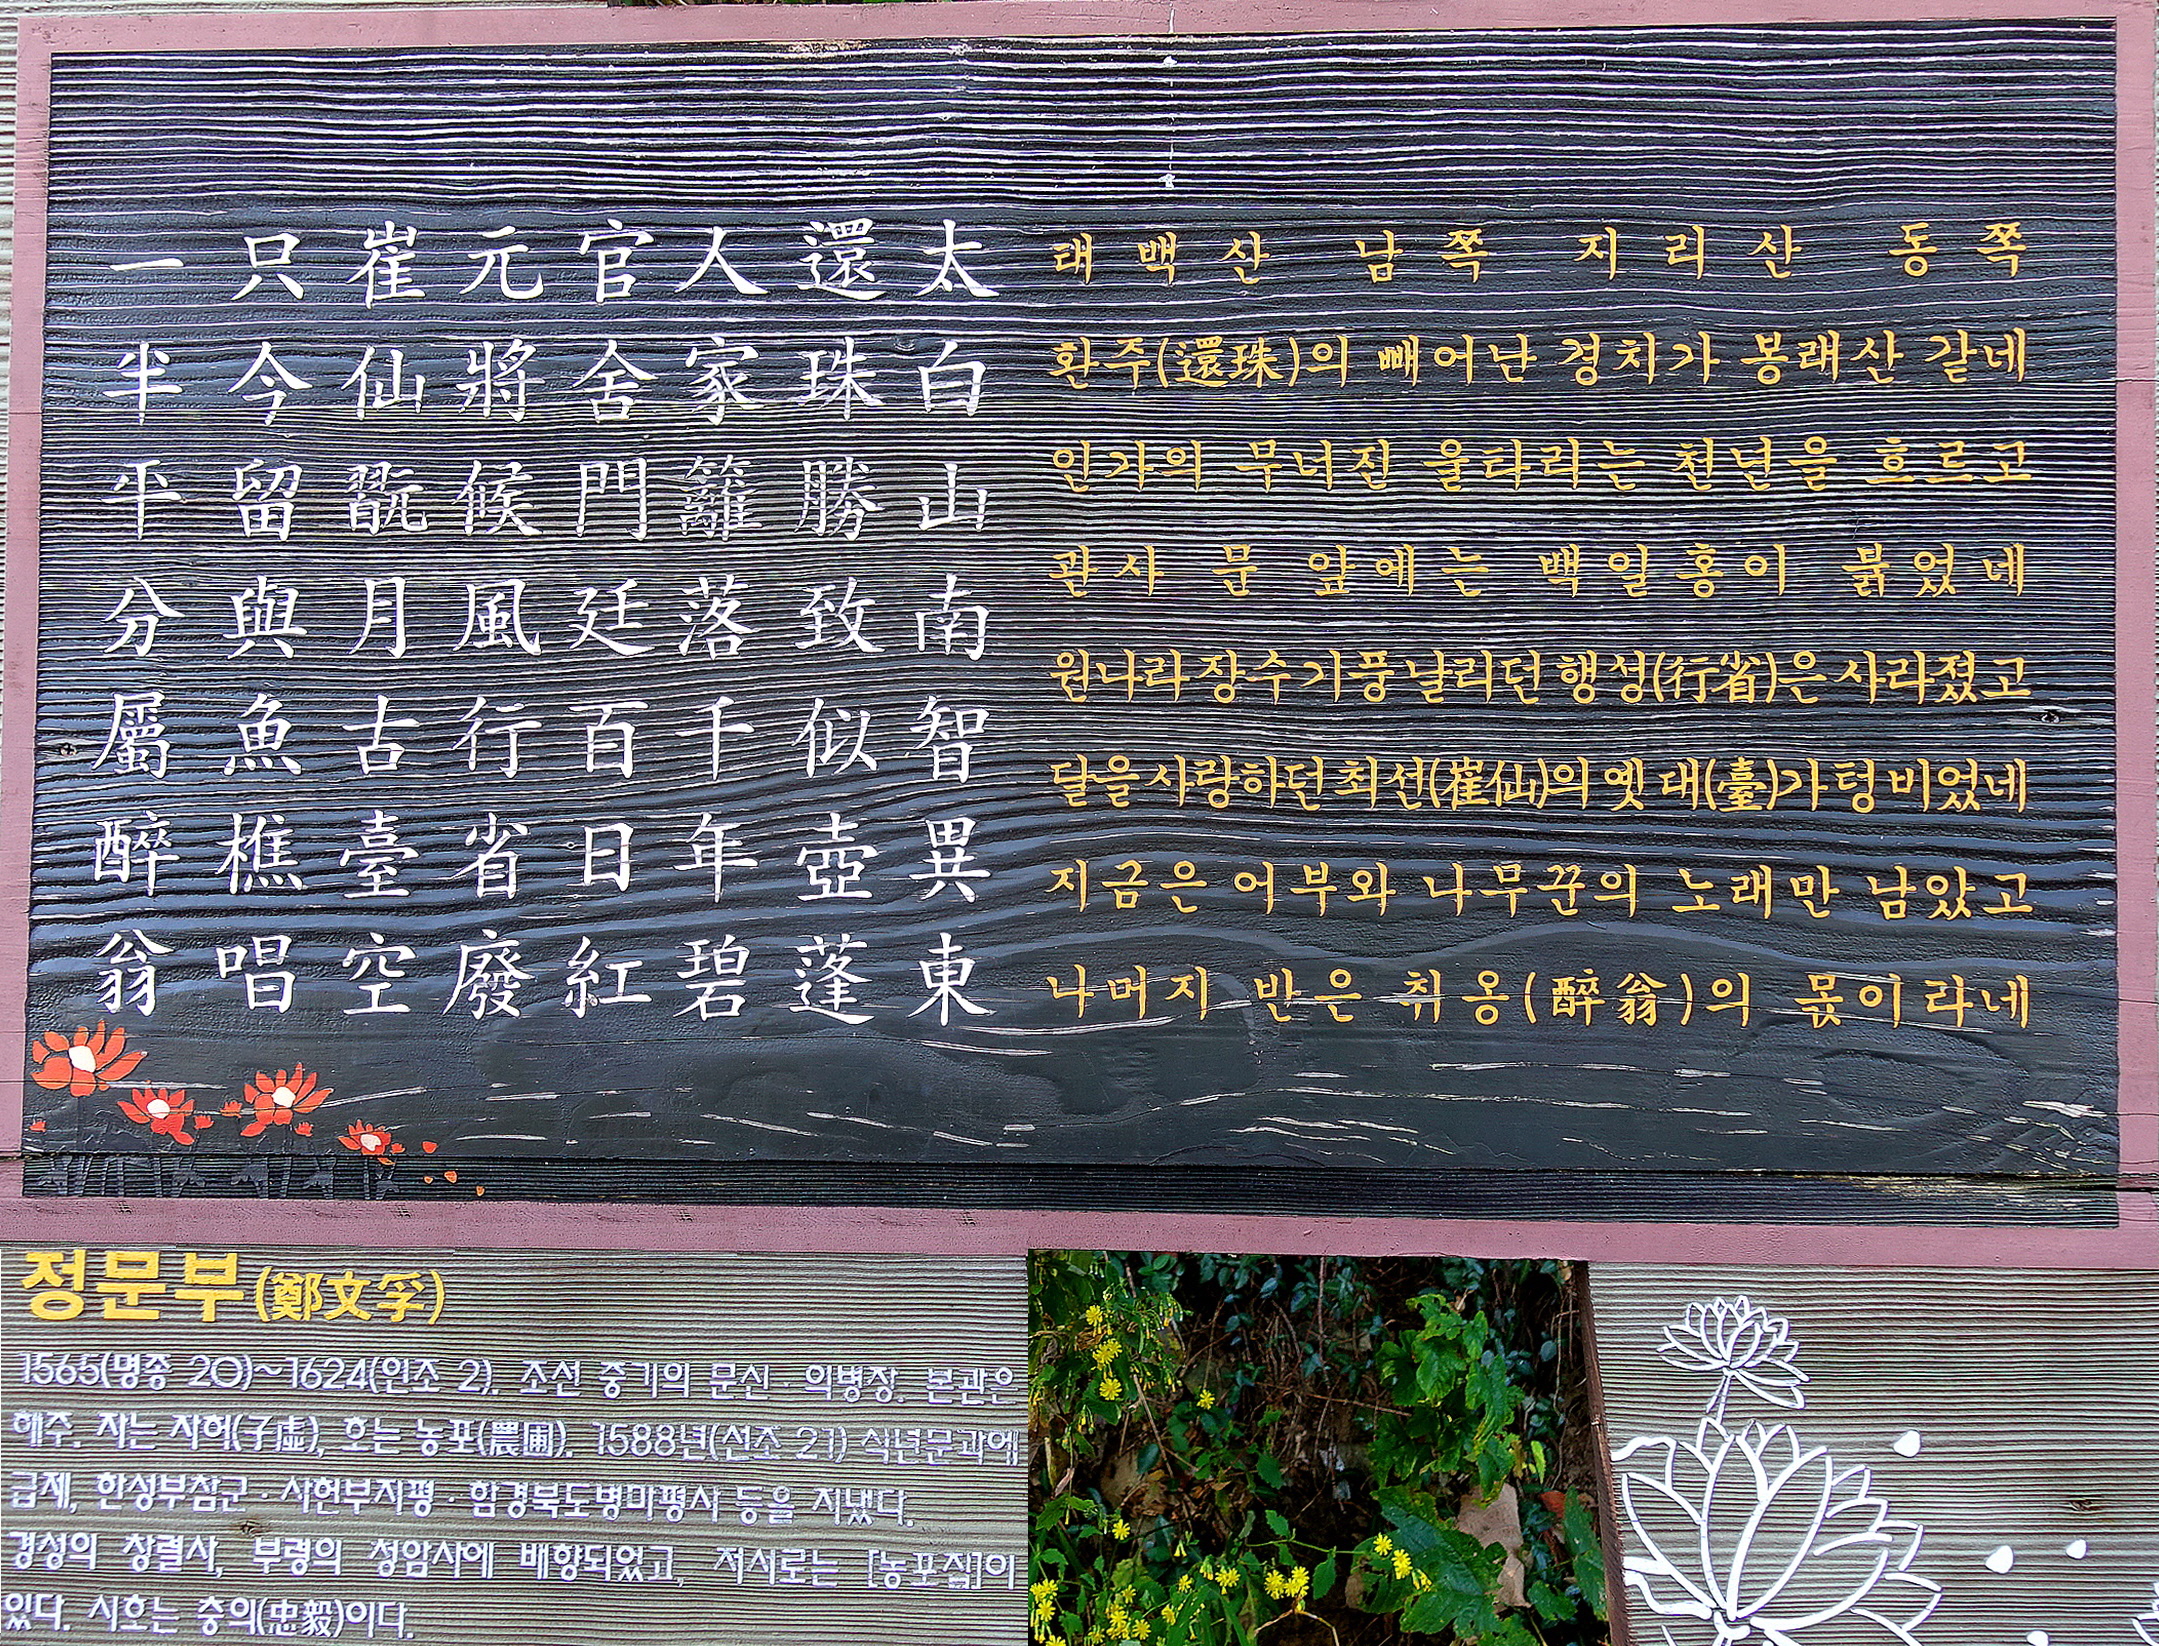 太白山南智異東
還珠勝致似壺蓬
人家籬落千年碧
官舍門廷百日紅
元將候風行省廢
崔仙翫月古臺空
只今留與魚樵唱
一半平分屬醉翁
태백산 남쪽 지리산 동쪽
환주(還珠)의 빼어난 경치가 봉래산 같네
인가의 무너진 울타리는 천년을 흐르고
관사 문 앞에는 백일홍이 붉었네
원나라 장수 기풍 날리던 행성(行省)은 사라졌고
달을 사랑하던 최선(崔仙)의 옛 대(臺)가 텅 비었네
지금은 어부와 나무꾼의 노래만 남았고
나머지 반은 취옹(醉翁)의 몫이라네
정문부(鄭文孚)
1565(명종 20)~1624(인조 2). 조선 중기의 문신·의병장. 본관은
해주. 자는 자허(子虛), 호는 농포(農圃). 1588년(선조 21) 식년문과에
급제, 한성부참군·사헌부지평·함경북도병마평사 등을 지냈다.
경성의 창렬사, 부령의 청암사에 배향되었고, 저서로는 [농포집]이
있다. 시호는 충의(忠毅)이다.